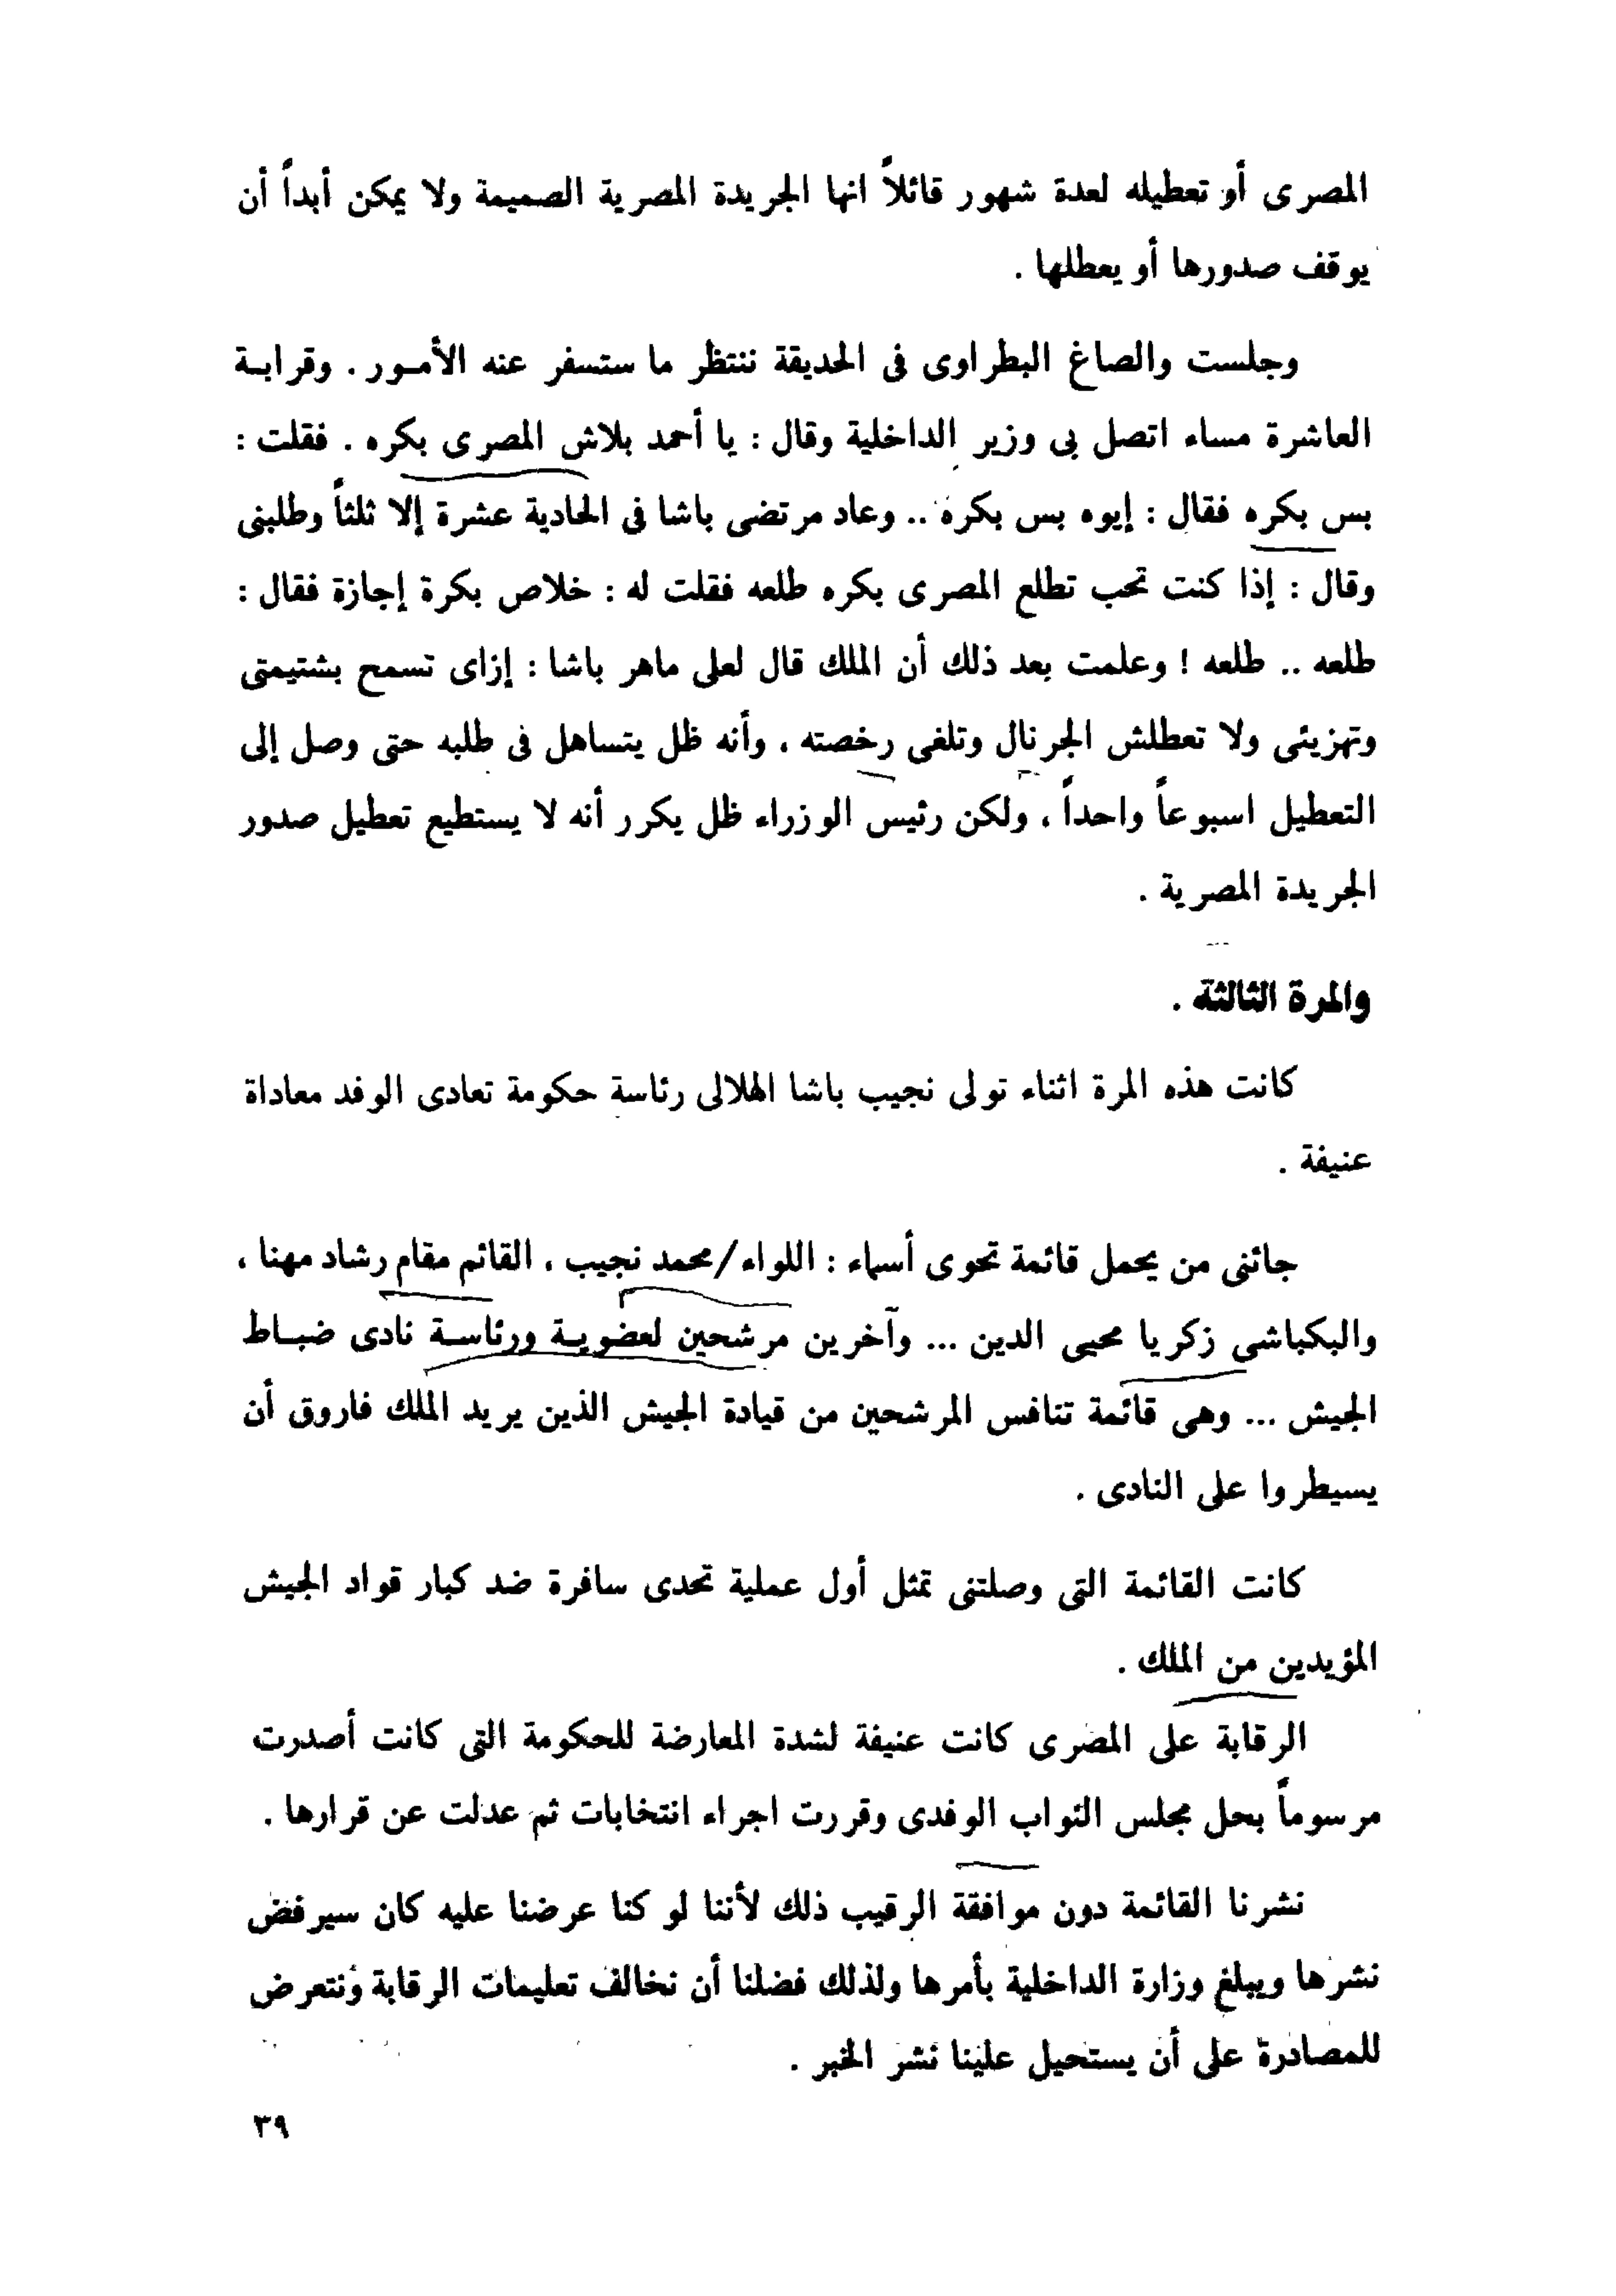 المصرى أو تعطيله لعدة شهور قائلاً انها الجريدة المصرية الصميمة ولا يمكن أبداً أن
يوقف صدورها أو يعطلها .
وجلست والصاغ البطراوى فى الحديقة ننتظر ما ستسفر عنه الأمـور . وقرابـة
العاشرة مساء اتصل بى وزير الداخلية وقال : يا أحمد بلاش المصرى بكره . فقلت :
بس بكره فقال : إيوه بس بكره .. وعاد مرتضى باشا فى الحادية عشرة إلا ثلثاً وطلبنى
وقال : إذا كنت تحب تطلع المصرى بكره طلعه فقلت له : خلاص بكرة إجازة فقال :
طلعه .. طلعه ! وعلمت بعد ذلك أن الملك قال لعلى ماهر باشا : إزاى تسمح بشتيمتى
وتهزيئى ولا تعطلش الجرنال وتلغى رخصته ، وأنه ظل يتساهل فى طلبه حتى وصل إلى
التعطيل اسبوعاً واحداً ، ولكن رئيس الوزراء ظل يكرر أنه لا يستطيع تعطيل صدور
الجريدة المصرية .
والمرة الثالثة .
كانت هذه المرة اثناء تولى نجيب باشا الهلالى رئاسة حكومة تعادى الوفد معاداة
عنيفة .
جائنى من يحمل قائمة تحوى أسماء : اللواء/محمد نجيب ، القائم مقام رشاد مهنا ،
والبكباشى زكريا محيى الدين ... وآخرين مرشحين لعضويـة ورئاسـة نادى ضبـاط
الجيش ... وهى قائمة تنافس المرشحين من قيادة الجيش الذين يريد الملك فاروق أن
يسيطروا على النادى .
كانت القائمة التى وصلتنى تمثل أول عملية تحدى سافرة ضد كبار قواد الجيش
المؤيدين من الملك .
الرقابة على المصرى كانت عنيفة لشدة المعارضة للحكومة التى كانت أصدرت
مرسوماً بحل مجلس النواب الوفدى وقررت اجراء انتخابات ثم عدلت عن قرارها .
نشرنا القائمة دون موافقة الرقيب ذلك لأننا لو كنا عرضنا عليه كان سيرفض
نشرها ويبلغ وزارة الداخلية بأمرها ولذلك فضلنا أن نخالف تعليمات الرقابة ونتعرض
للمصادرة على أن يستحيل علينا نشر الخبر .
٣٩